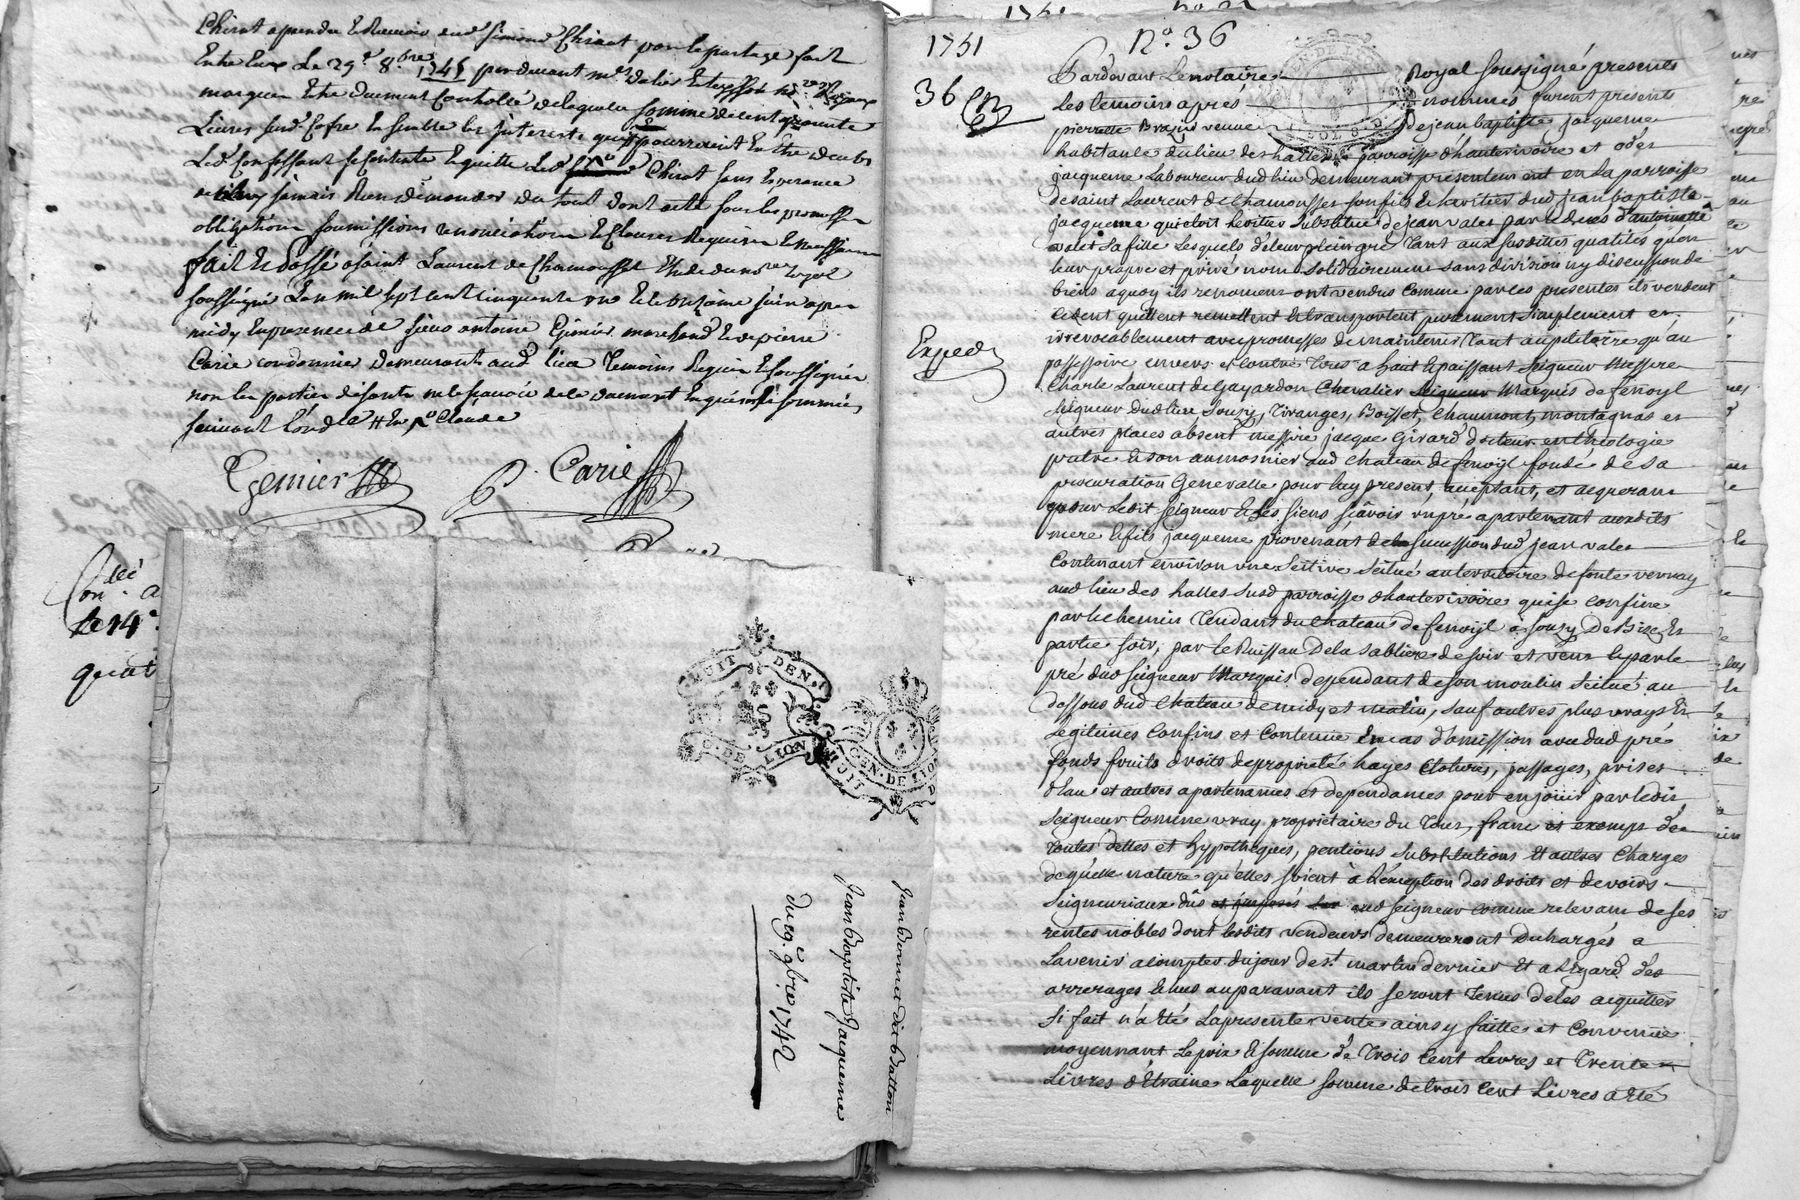 Chirat a prendre et recevoir dud. Simond Chirat par le partage fait
Entre Eux Le 29e. 8bre 1745 pardevant
marquer Et duement Controllé de laquelle somme de cent
Livres susd. Ensemble les Interests qui pourroient Estre deubs
Led. Confessant se contente Equitte Led. Chirat sans Esperance
jamais Rien demander du tout dont acte sous les promesses
obligations soumissions renonciations Et Clauses Requises
fait Et passé a saint Laurent de Chamousset Etude du no.re royal
soussigné L'an mil sept cent cinquante un Et le juin apres
midy En presence de sieur antoine Gemier marchand Et de pierre
Carie cordonnier demeurants aud. lieu Temoins Requis Et soussignés
non les parties de ce Enquis Et sommés
suivant l'ord.ce Claude
Gemier P. Carie
Con.
Le 14e.
quat
HUIT DEN.
G. DE LION
GEN. DE LION
HUIT D
Jean Bonnet dit Batton
Jean Baptiste Jacqueme
du 19e. 9bre 1742
1751
No. 36
36
Exped
Pardevant Le notaire Royal soussigné presents
Les temoins aprés nommés furent presents
pierrette Brazid veuve de jean baptiste jacqueme
habitante du lieu des halles parroisse d'hauterivoire et
jacqueme Laboureur dud lieu demeurant presentement en La parroisse
de saint Laurent de Chamousset son fils et heritier dud jean baptiste
jacqueme qui étoit heritier substitué de jean valet par le deces d'antoinette
valet sa fille Lesquels de leur plein gré tant aux susdittes qualités qu'en
leur propre et privé nom solidairement sans division ny discussion de
biens a quoy ils renoncent ont vendus comme par ces presentes ils vendent
cedent quittent remettent et transportent purement simplement et
irrevocablement avec promesses de maintenir tant au petitoire qu'au
possessoire envers et contre tous a haut et puissant seigneur Messire
Charle Laurent de Gayardon Chevalier Seigneur Marquis de fenoyl
Seigneur dud lieu Souzy, Tiranges, Boisset, Chaumont, montagnac et
autres places absent messire jacque Girard docteur en theologie
pretre et son aumosnier aud chateau de fenoyl fondé de sa
procuration Generalle pour luy present, acceptant, et acquerant
pour Ledit Seigneur et Les siens sçavoir un pré apartenant auxdits
mere et fils jacqueme provenant de la succession dud jean valet
Contenant environ une seitive scitué au territoire de font vernay
aud lieu des halles susd parroisse d'hauterivoire qui se confine
par le chemin tendant du chateau de fenoyl a Souzy de Bize et
partie soir, par le Ruisseau de la sabliere de soir et vent et par le
pré dud seigneur Marquis dependant de son moulin scitué au
dessous dud chateau de midy et matin, sauf autres plus vrays et
Legitimes confins et contenue En cas d'omission avec dud pré
fonds fruits droits de propriété hayes clotures, passages, prises
d'eau et autres apartenances et dependances pour en jouir par ledit
seigneur comme vray proprietaire du tout, franc et exempt de
toutes dettes et hypotheques, pentions substitutions et autres charges
de quelle nature qu'elles soient à l'exeption des droits et devoirs
seigneuriaux dûs aud seigneur comme relevant de ses
rentes nobles dont lesdits vendeurs demeureront dechargés a
Lavenir a compter du jour de st. martin dernier et a L'egard des
arrerages Echus auparavant ils seront tenus de les acquitter
si fait n'a été La presente vente ainsy faitte et convenue
moyennant Le prix et somme de trois cent Livres et trente
Livres d'étraine Laquelle somme de trois cent Livres a été